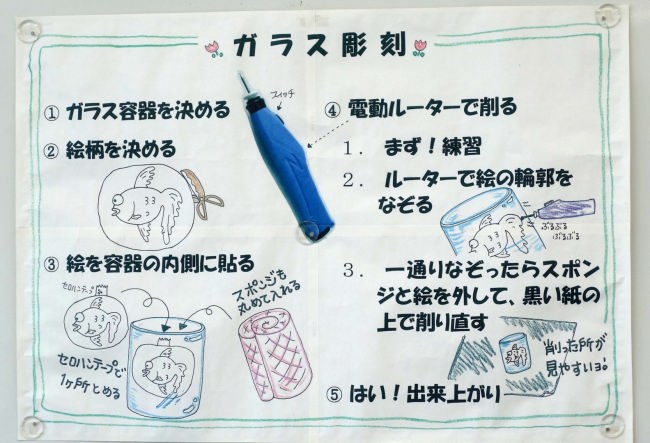 ガラス彫刻
スイッチ
① ガラス容器を決める
② 絵柄を決める
③ 絵を容器の内側に貼る
セロハンテープ
スポンジも
丸めて入れる
セロハンテープで
1ヶ所とめる
④ 電動ルーターで削る
1. まず！練習
2. ルーターで絵の輪郭を
なぞる
ぶるぶる
ぶるぶる
3. 一通りなぞったらスポン
ジと絵を外して、黒い紙の
上で削り直す
削った所が
見やすいヨ!
⑤ はい！出来上がり